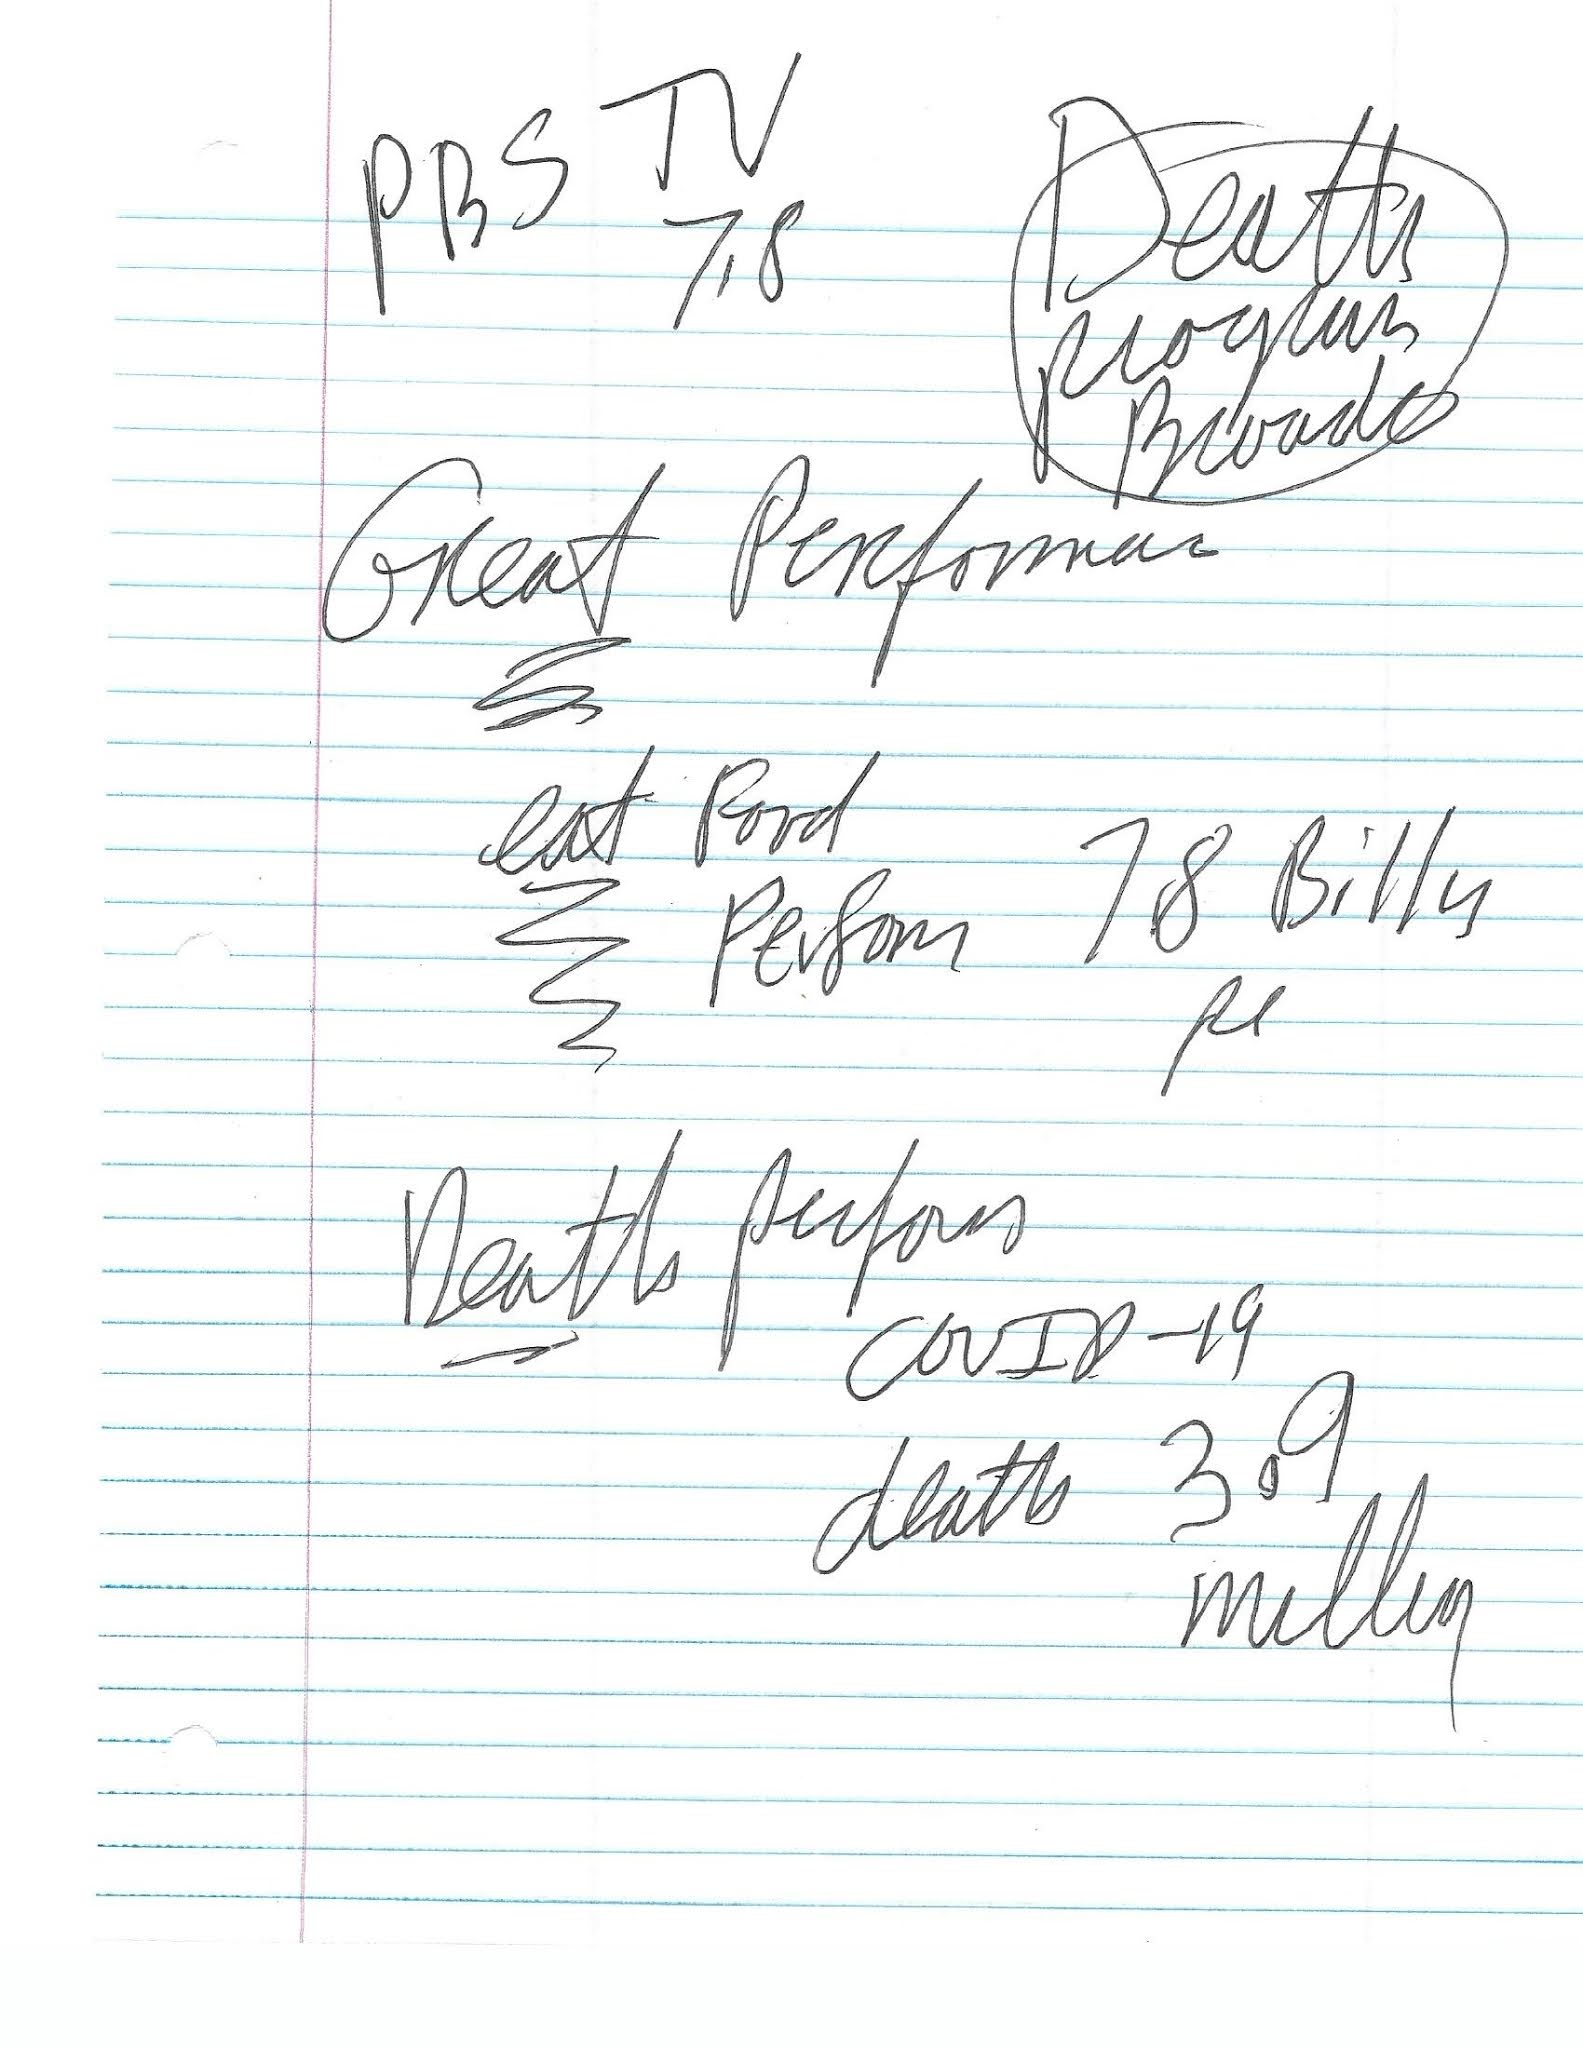 PBS TV
7.8
Death
program
Broadc
Great Performan
eat Food
Perform 78 Billn
pe
Death perform
COVID-19
death 3.9
million